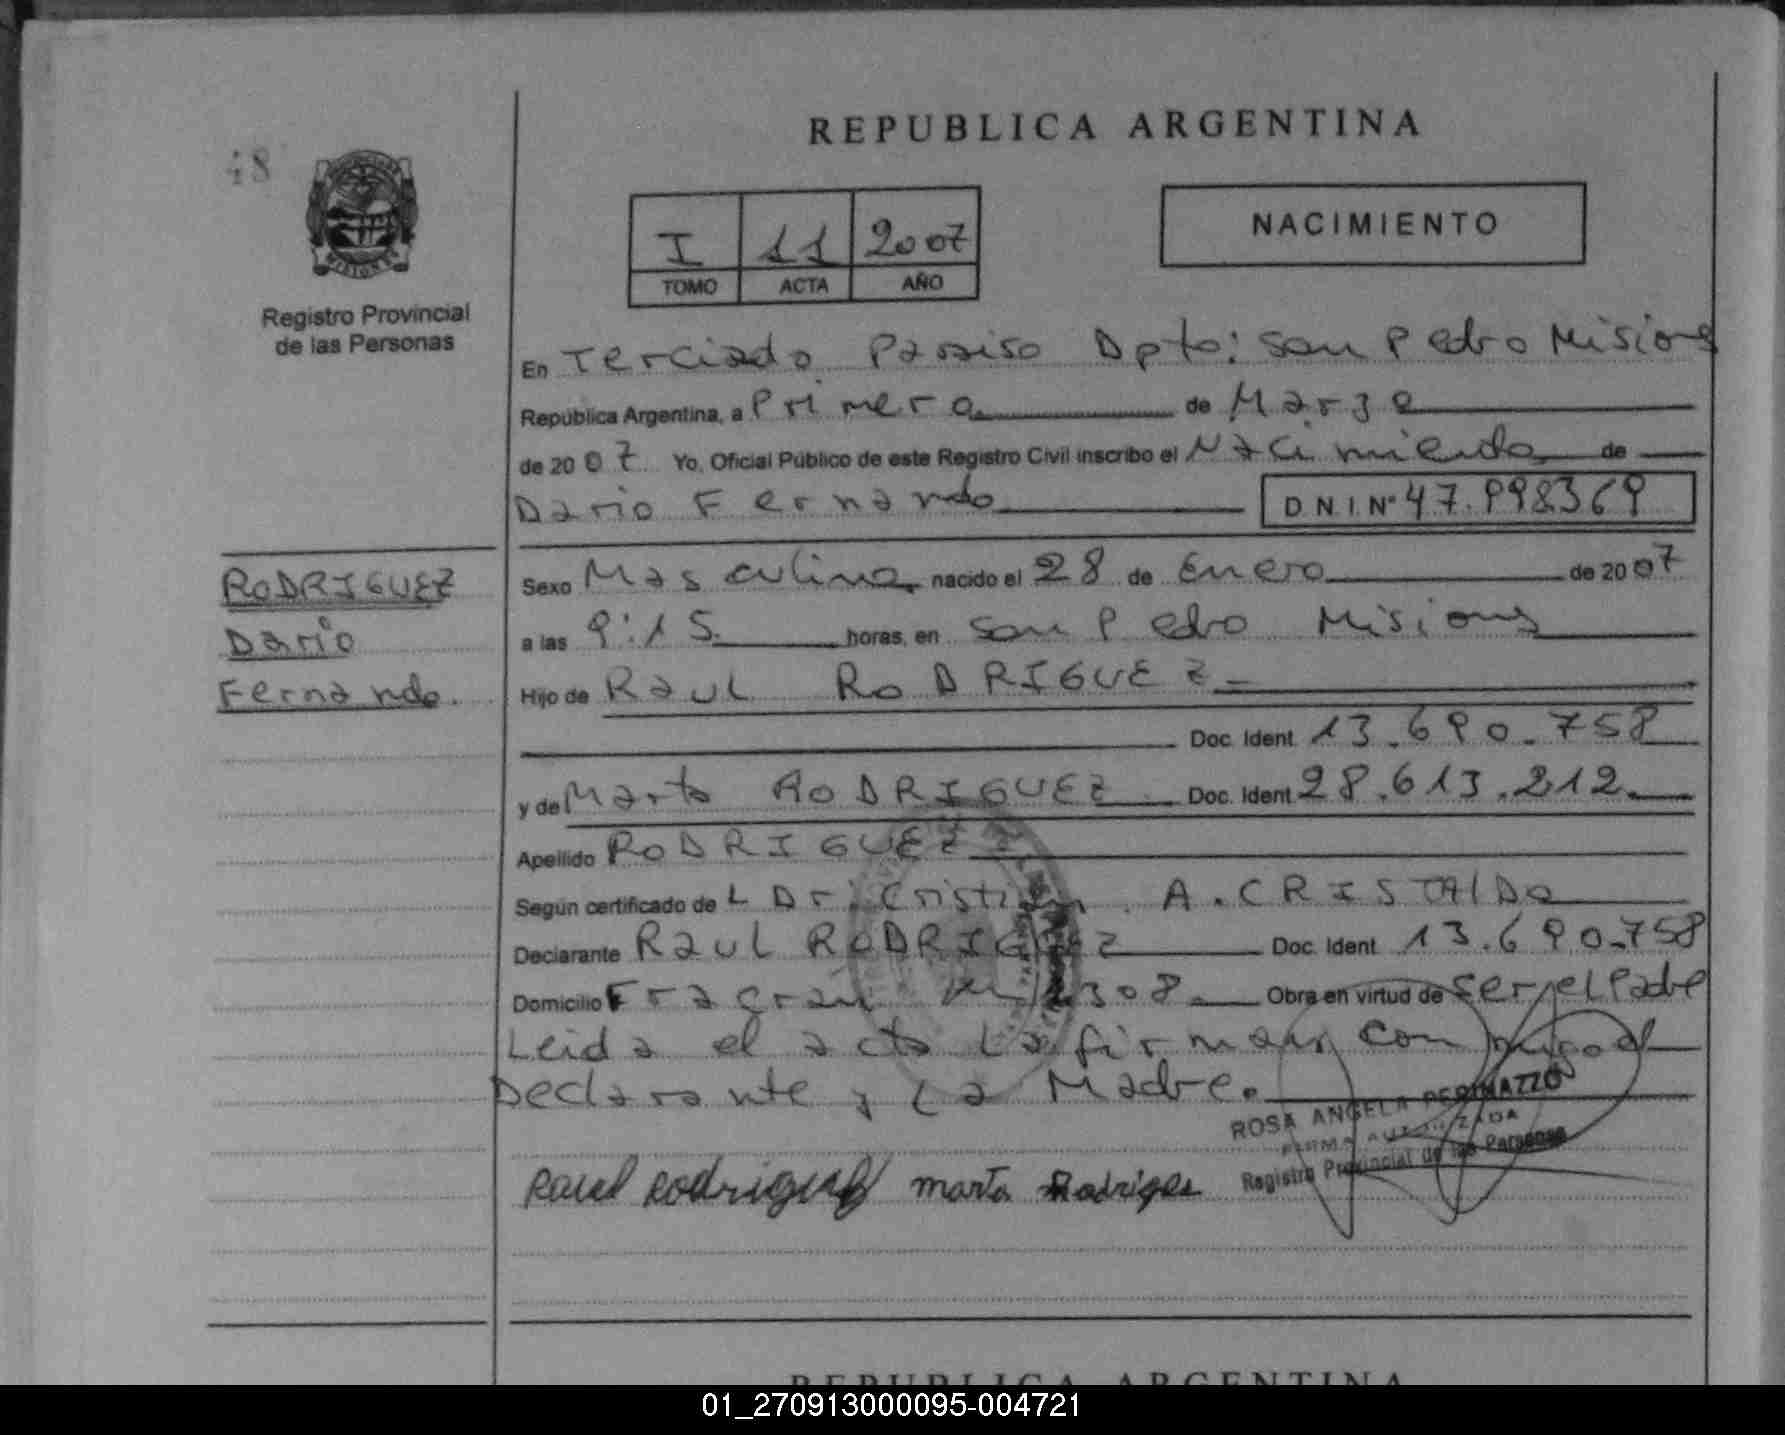 48
REPUBLICA ARGENTINA
I 11 2007
TOMO ACTA AÑO
NACIMIENTO
MISIONES
Registro Provincial
de las Personas
En Terciado Paraiso Dpto: San Pedro Misiones
República Argentina, a Primero de Marzo
de 2007 Yo, Oficial Público de este Registro Civil inscribo el Nacimiento de
Dario Fernando D.N.I. Nº 47.998369
RODRIGUEZ
Dario
Fernando.
Sexo Masculino nacido el 28 de Enero de 2007
a las 9:15 horas, en San Pedro Misiones
Hijo de Raul RODRIGUEZ
Doc. Ident. 13.690.758
y de Marta RODRIGUEZ Doc. Ident. 28.613.212.
Apellido RODRIGUEZ
Según certificado de L Dr. Cristian A. CRISTALDO
Declarante Raul RODRIGUEZ Doc. Ident. 13.690.758
Domicilio Fracran 308. Obra en virtud de ser el Padre
Leida el acta la firman conmigo el
Declarante y La Madre.
ROSA ANGELA PERINAZZO
FIRMA AUTORIZADA
Registro Provincial de las Personas
Raul Rodriguez marta Rodrigues
REPUBLICA ARGENTINA
01_270913000095-004721